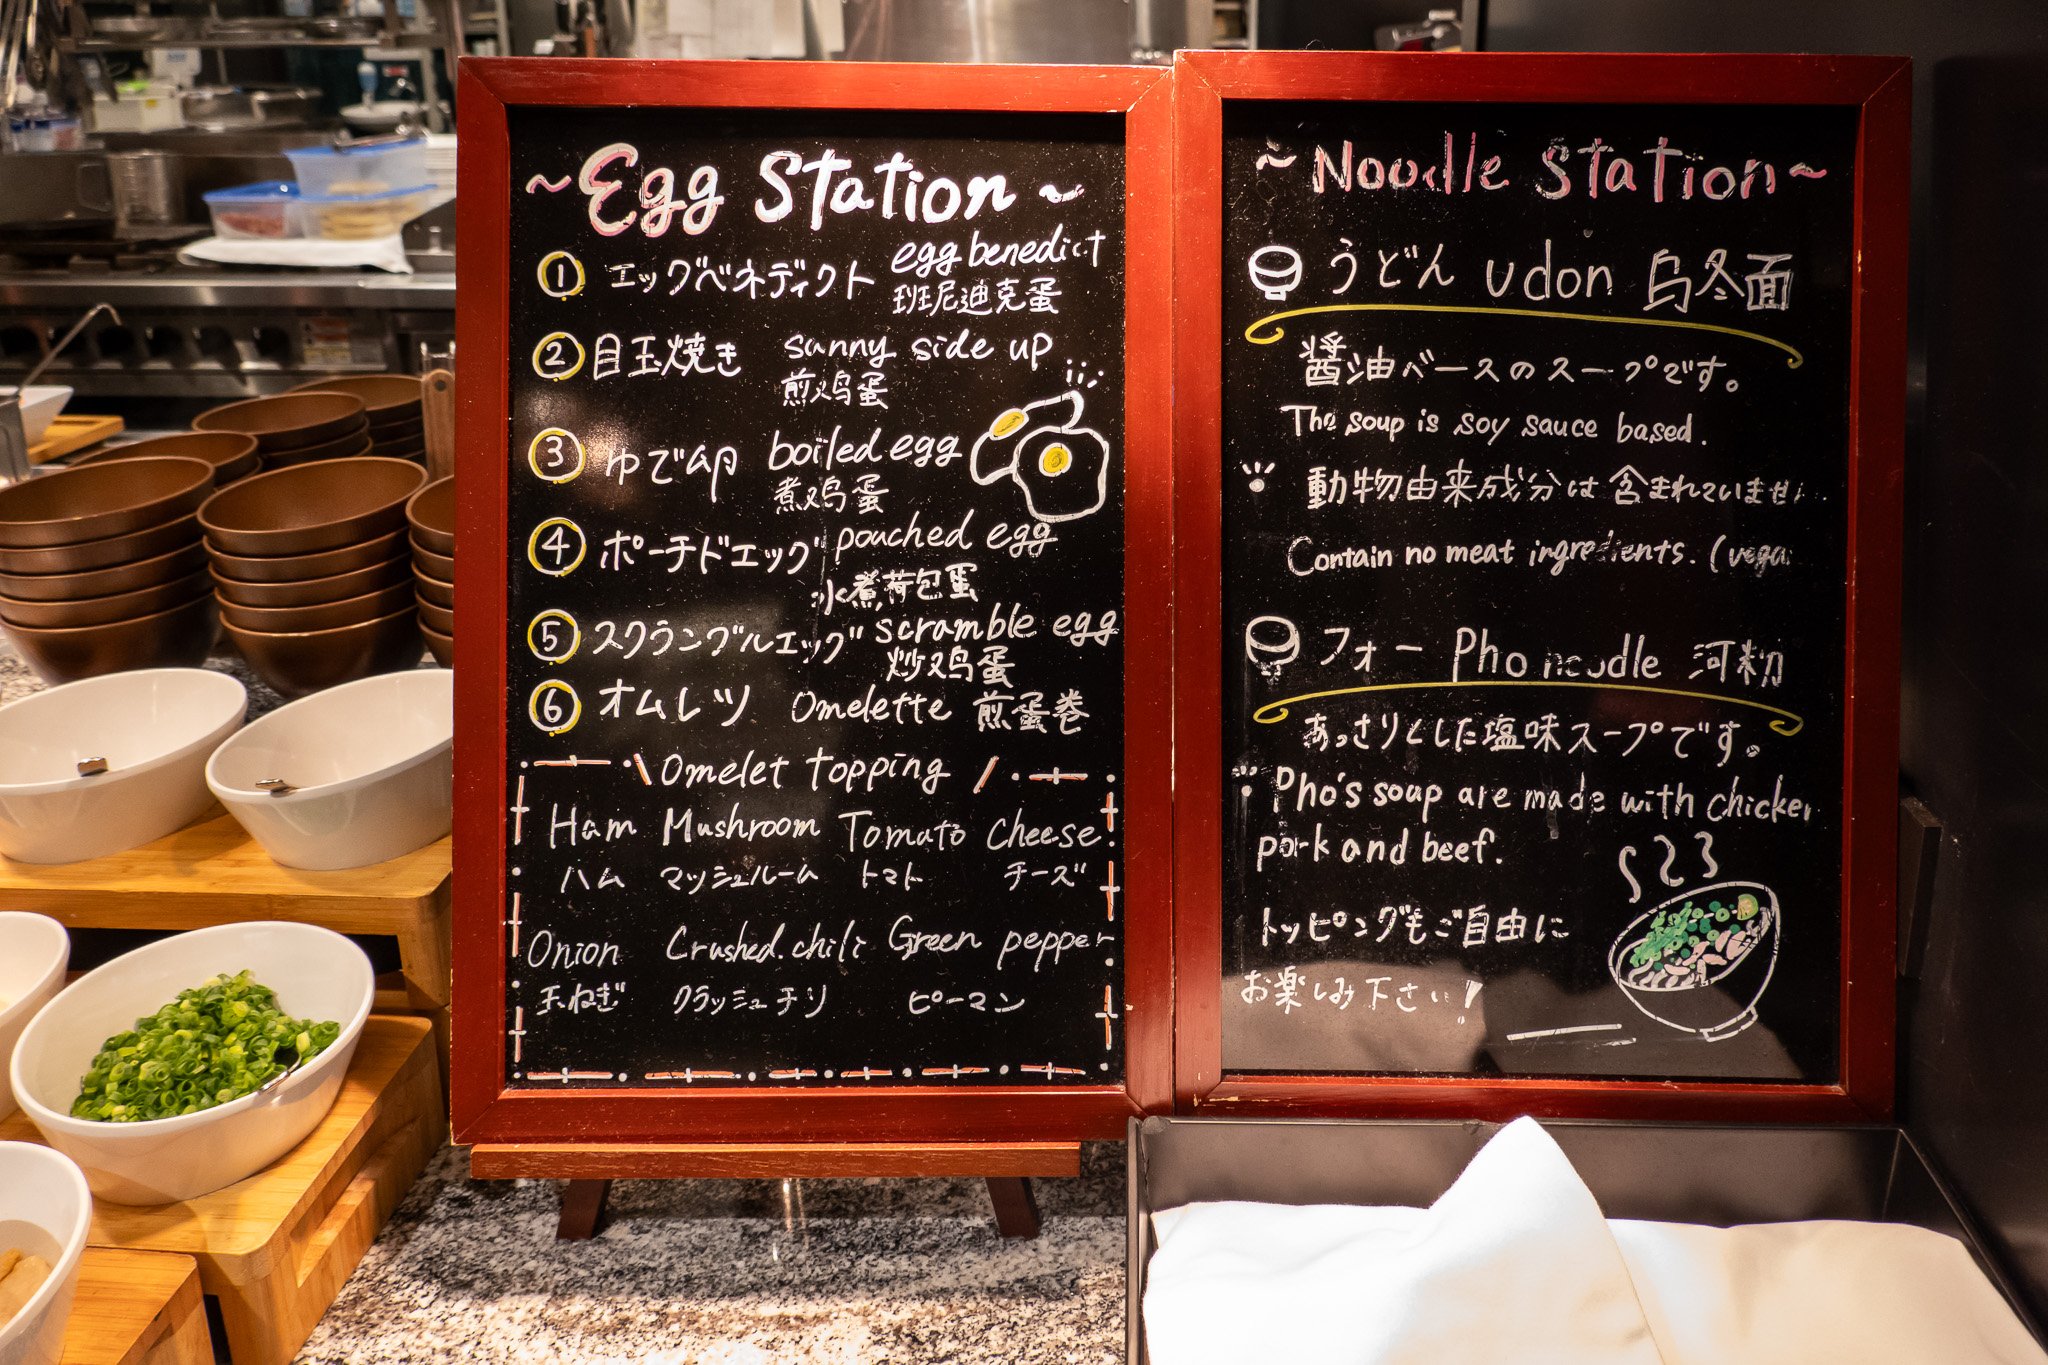 ~Egg Station~
① エッグベネディクト egg benedict
班尼迪克蛋
② 目玉焼き sunny side up
煎鸡蛋
③ ゆで卵 boiled egg
煮鸡蛋
④ ポーチドエッグ pouched egg
水煮荷包蛋
⑤ スクランブルエッグ scramble egg
炒鸡蛋
⑥ オムレツ Omelette 煎蛋卷
\Omelet topping/
Ham Mushroom Tomato Cheese
ハム マッシュルーム トマト チーズ
Onion Crushed.chili Green pepper
玉ねぎ クラッシュチリ ピーマン
~Noodle Station~
うどん udon 乌冬面
醤油ベースのスープです。
The soup is soy sauce based.
動物由来成分は含まれていませ
Contain no meat ingredients. (vega
フォー Pho noodle 河粉
あっさりとした塩味スープです。
Pho's soup are made with chicken
pork and beef.
トッピングもご自由に
お楽しみ下さい!